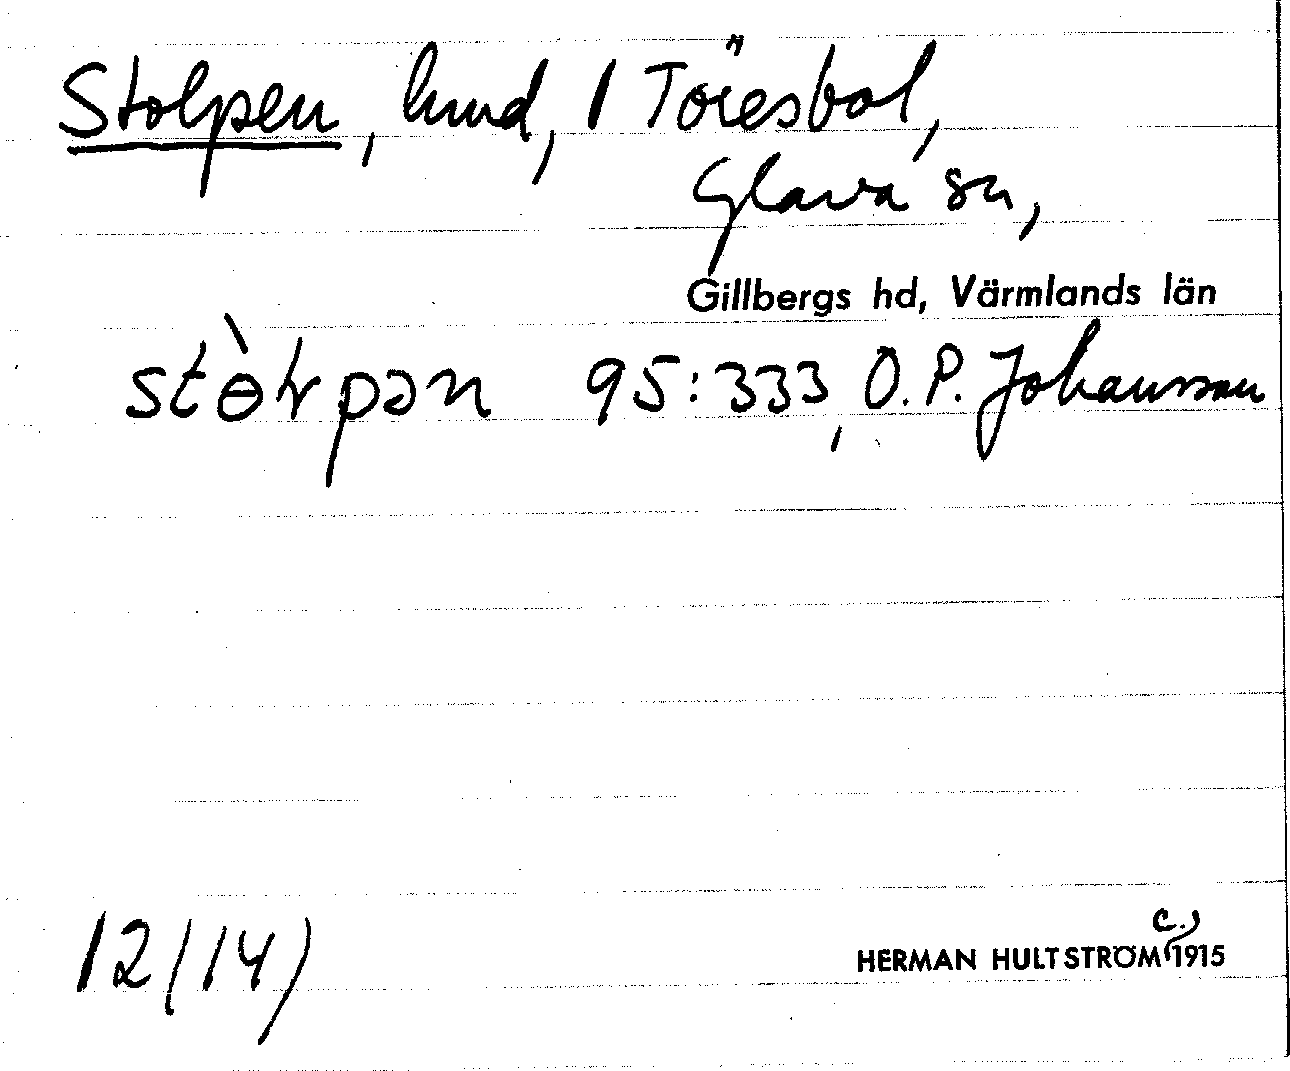 Stolpen, lund, 1 Töresbol,
Glava sn,
Gillbergs hd, Värmlands län
95:333, O.P. Johansson
12(14)
HERMAN HULTSTRÖM c. 1915